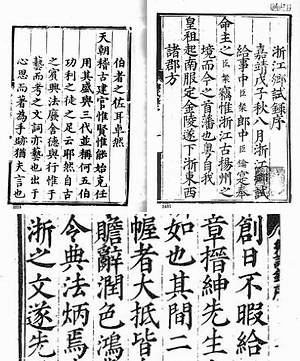 浙江鄉試錄
嘉靖戊子秋八月浙江鄉試
給事中臣粲郎中臣綸寔奉
命主之臣粲竊惟浙江古揚州之
境而今之首藩也粵自我
皇祖起南服定金陵遂下浙東西
諸郡方
伯者之佐耳卓然
天朝稽古建官惟賢惟能始克任
用其盛與三代並稱何五伯
功利之徒之足云耶然自古
之賓興法廢舍德與行惟于
藝而考之文詞亦藝也出于
心思而著為手跡猶夫言也
創日不暇給
章搢紳先生
如也其間二
幄者大抵皆
贍辭潤色鴻
令典法炳焉
浙之文遂先